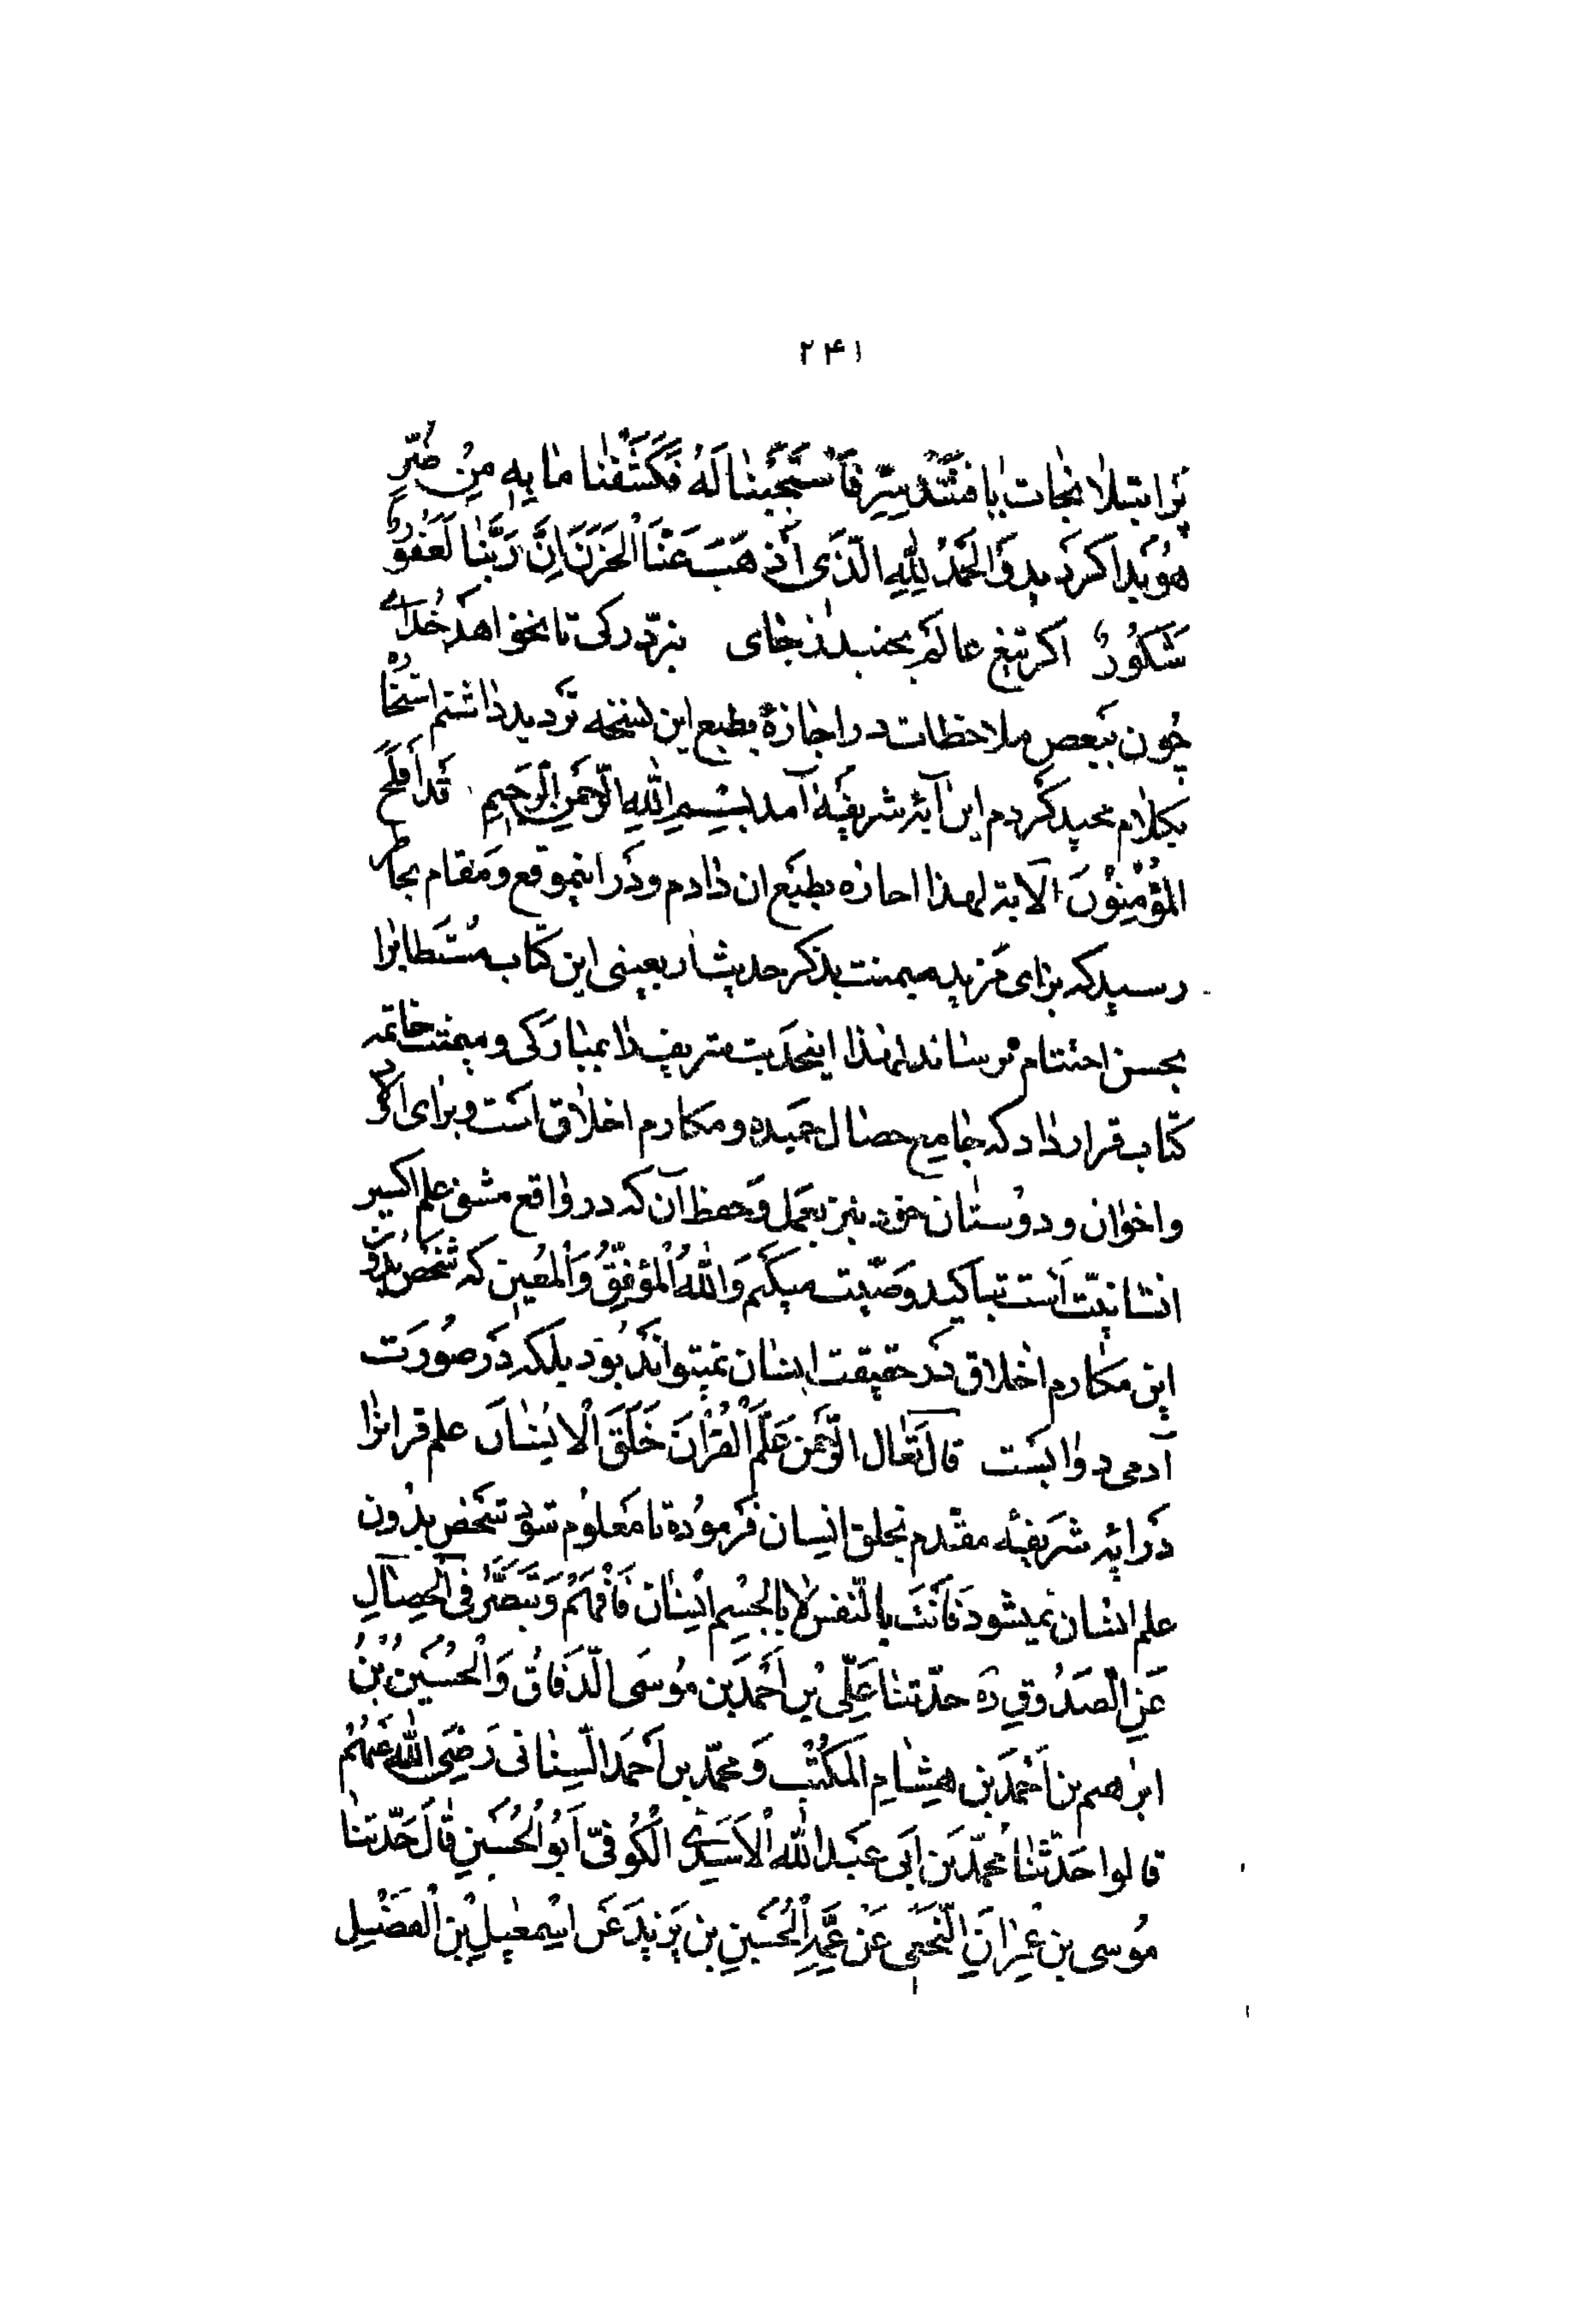 ۲۴۱
ازابتلا نجات یافتند سِرّ فَاسْتَجَبْنٰا لَهُ فَكَشَفْنٰا مٰا بِهِ مِنْ ضُرٍّ
هویدا کردید وَالْحَمْدُ لِلّٰهِ الَّذی اَذْهَبَ عَنَّا الْحَزَنَ اِنَّ رَبَّنٰا لَغَفُورٌ
شَكُورٌ اکر تیغ عالم بجنبد ز جای نبرّد رکی تا نخواهد خُدای
چون ببعض ملاحظات در اجازهٔ بطبع این نسخه تردید داشتم استخاره
بکلام مجید کردم این آیهٔ شریفه آمد بِسْمِ اللّٰهِ الرَّحْمٰنِ الرَّحیمِ قَدْ اَفْلَحَ
الْمُؤْمِنُونَ الآیة لهذا اجازه بطبع ان دادم و در اینموقع و مقام بخاطر
رسید که برای مزید میمنت بذکر حدیث اربعینی این کتاب مستطابرا
بحسن اختتام برساند لهذا اینحدیث شریف را بمبارکی و میمنت خاتمه
کتاب قرار داد که جامع خصال حمیده و مکارم اخلاق است و برای اولاد
و اخوان و دوستان خود نیز بعمل و حفظ آن که در واقع مشق علم اکسیر
انسانیّت است تباکید وصّیت میکنم وَاللّٰهُ الْمُوَفِّقُ وَالْمُعین که شخص بدون
این مکارم اخلاق در حقیقت انسان نمیتواند بود بلکه در صورت
آدمی دوابست قالَ تَعٰالی الرَّحْمٰن عَلَّمَ الْقُرْاٰنَ خَلَقَ الْاِنْسٰانَ علم قرانرا
در ایه شریفه مقدم بخلق انسان فرموده تا معلوم شود شخص بدون
علم انسان نمیشود فَاَنْتَ بِالنَّفْسِ لٰا بِالْجِسْمِ اِنْسٰان فَافْهَمْ وَتَبَصَّرْ فی الْخِصٰالِ
عَنِ الصَّدُوقِ ره حدّثنا عَلیّ بن اَحْمَدَ بْن مُوسَی الدَّقّاق وَالْحُسَیْنُ بْنُ
ابرٰهیم بن اَحْمَدَ بن هِشٰامِ الْمُکَتِّب وَ محمّد بن اَحمَد السِّنٰانی رَضِیَ اللّٰهُ عَنْهُمْ
قالوا حَدَّثَنٰا مُحمّد بْن اَبی عَبْد اللّٰه الْاَسَدِیّ الْکُوفیّ اَبُوالْحُسَیْنِ قٰالَ حَدَّثَنٰا
مُوسی بن عِمْرٰانَ النَّخَعیِ عَنْ عَمِّهِ الْحُسَیْنِ بن یَزیدَ عَن اِسْمٰعیلِ بْنِ الْفَضْلِ